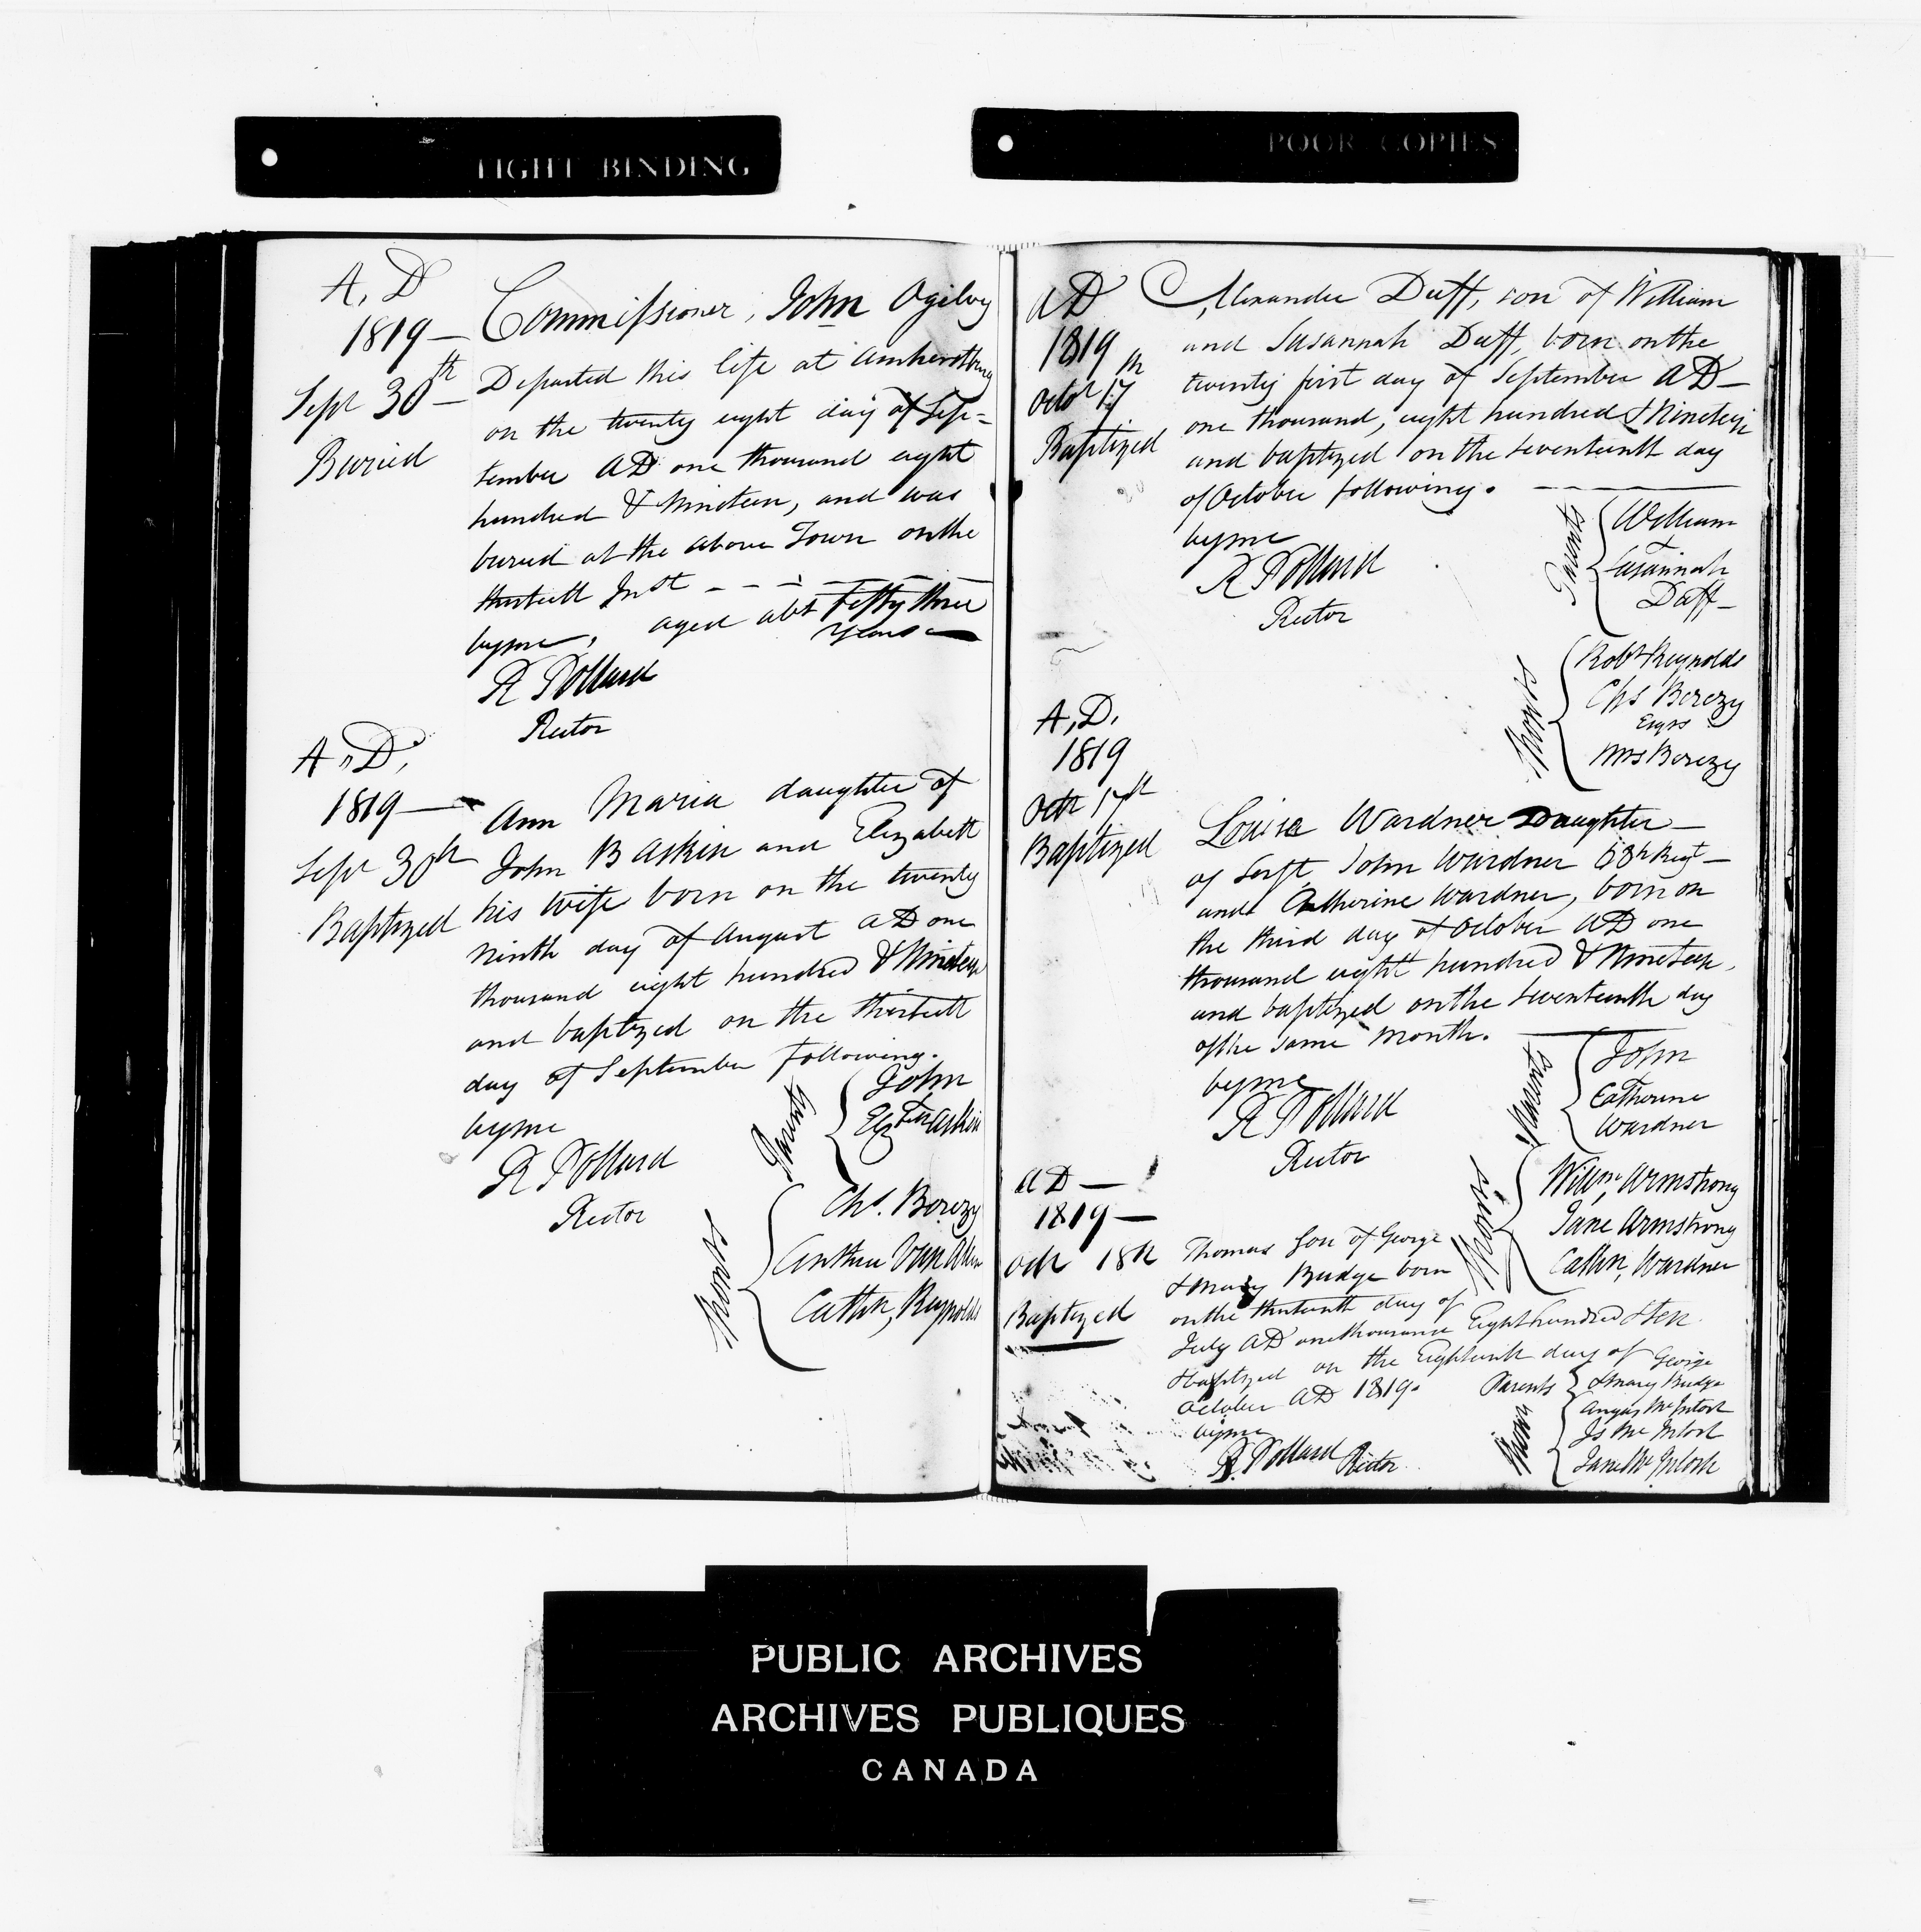 TIGHT BINDING
POOR COPIES
A, D
1819 —
Sept 30th —
Buried
Commissioner, John Ogilvy
Departed this life at Amherstburg
on the twenty eight day of Sep=
tember AD one thousand eight
hundred & Nineteen, and was
buried at the above Town on the
thirtieth Inst - - - — — —
by me, aged abt Fifty three
years —
R Pollard
Rector
A, D,
1819 —
Sept 30th
Baptized
Ann Maria daughter of
John B Askin and Elizabeth
his wife born on the twenty
ninth day of August AD one
thousand eight hundred & Nineteen
and baptized on the thirtieth
day of September following.
by me
R Pollard
Rector
Parents
John
Elizth Askin
Sponsors
Chs. Berezy
Cathn, Reynolds
AD
1819
Octor 17th
Baptized
Alexander Duff, son of William
and Susannah Duff, born on the
twenty first day of September AD —
one thousand, eight hundred & Nineteen
and baptized on the seventeenth day
of October following. — — —
by me
R Pollard
Rector
Parents
William
Susannah
Duff —
Sponsors
Robt Reynolds
Chs Berezy
Esqrs
Mrs Berezy
A, D,
1819
Octr 17th
Baptized
Louisa Wardner Daughter —
of Serjt John Wardner 68th Regt —
and Catherine Wardner, born on
the third day of October AD one
thousand eight hundred & Nineteen,
and baptized on the seventeenth day
of the same month. —
by me
R Pollard
Rector
Parents
John
Catherine
Wardner
Sponsors
Willm, Armstrong
Jane Armstrong
Cathn, Wardner
AD —
1819 —
Octr 18th
Baptized
Thomas Son of George
& Mary Budge born
on the thirteenth day of
July AD one thousand Eight hundred & ten
& baptized on the Eighteenth day of
October AD 1819.
by me
R Pollard Rector
Parents
George
& Mary Budge
Sponsors
Angus Mc Intosh
Js Mc Intosh
Jane Mc Intosh
PUBLIC ARCHIVES
ARCHIVES PUBLIQUES
CANADA